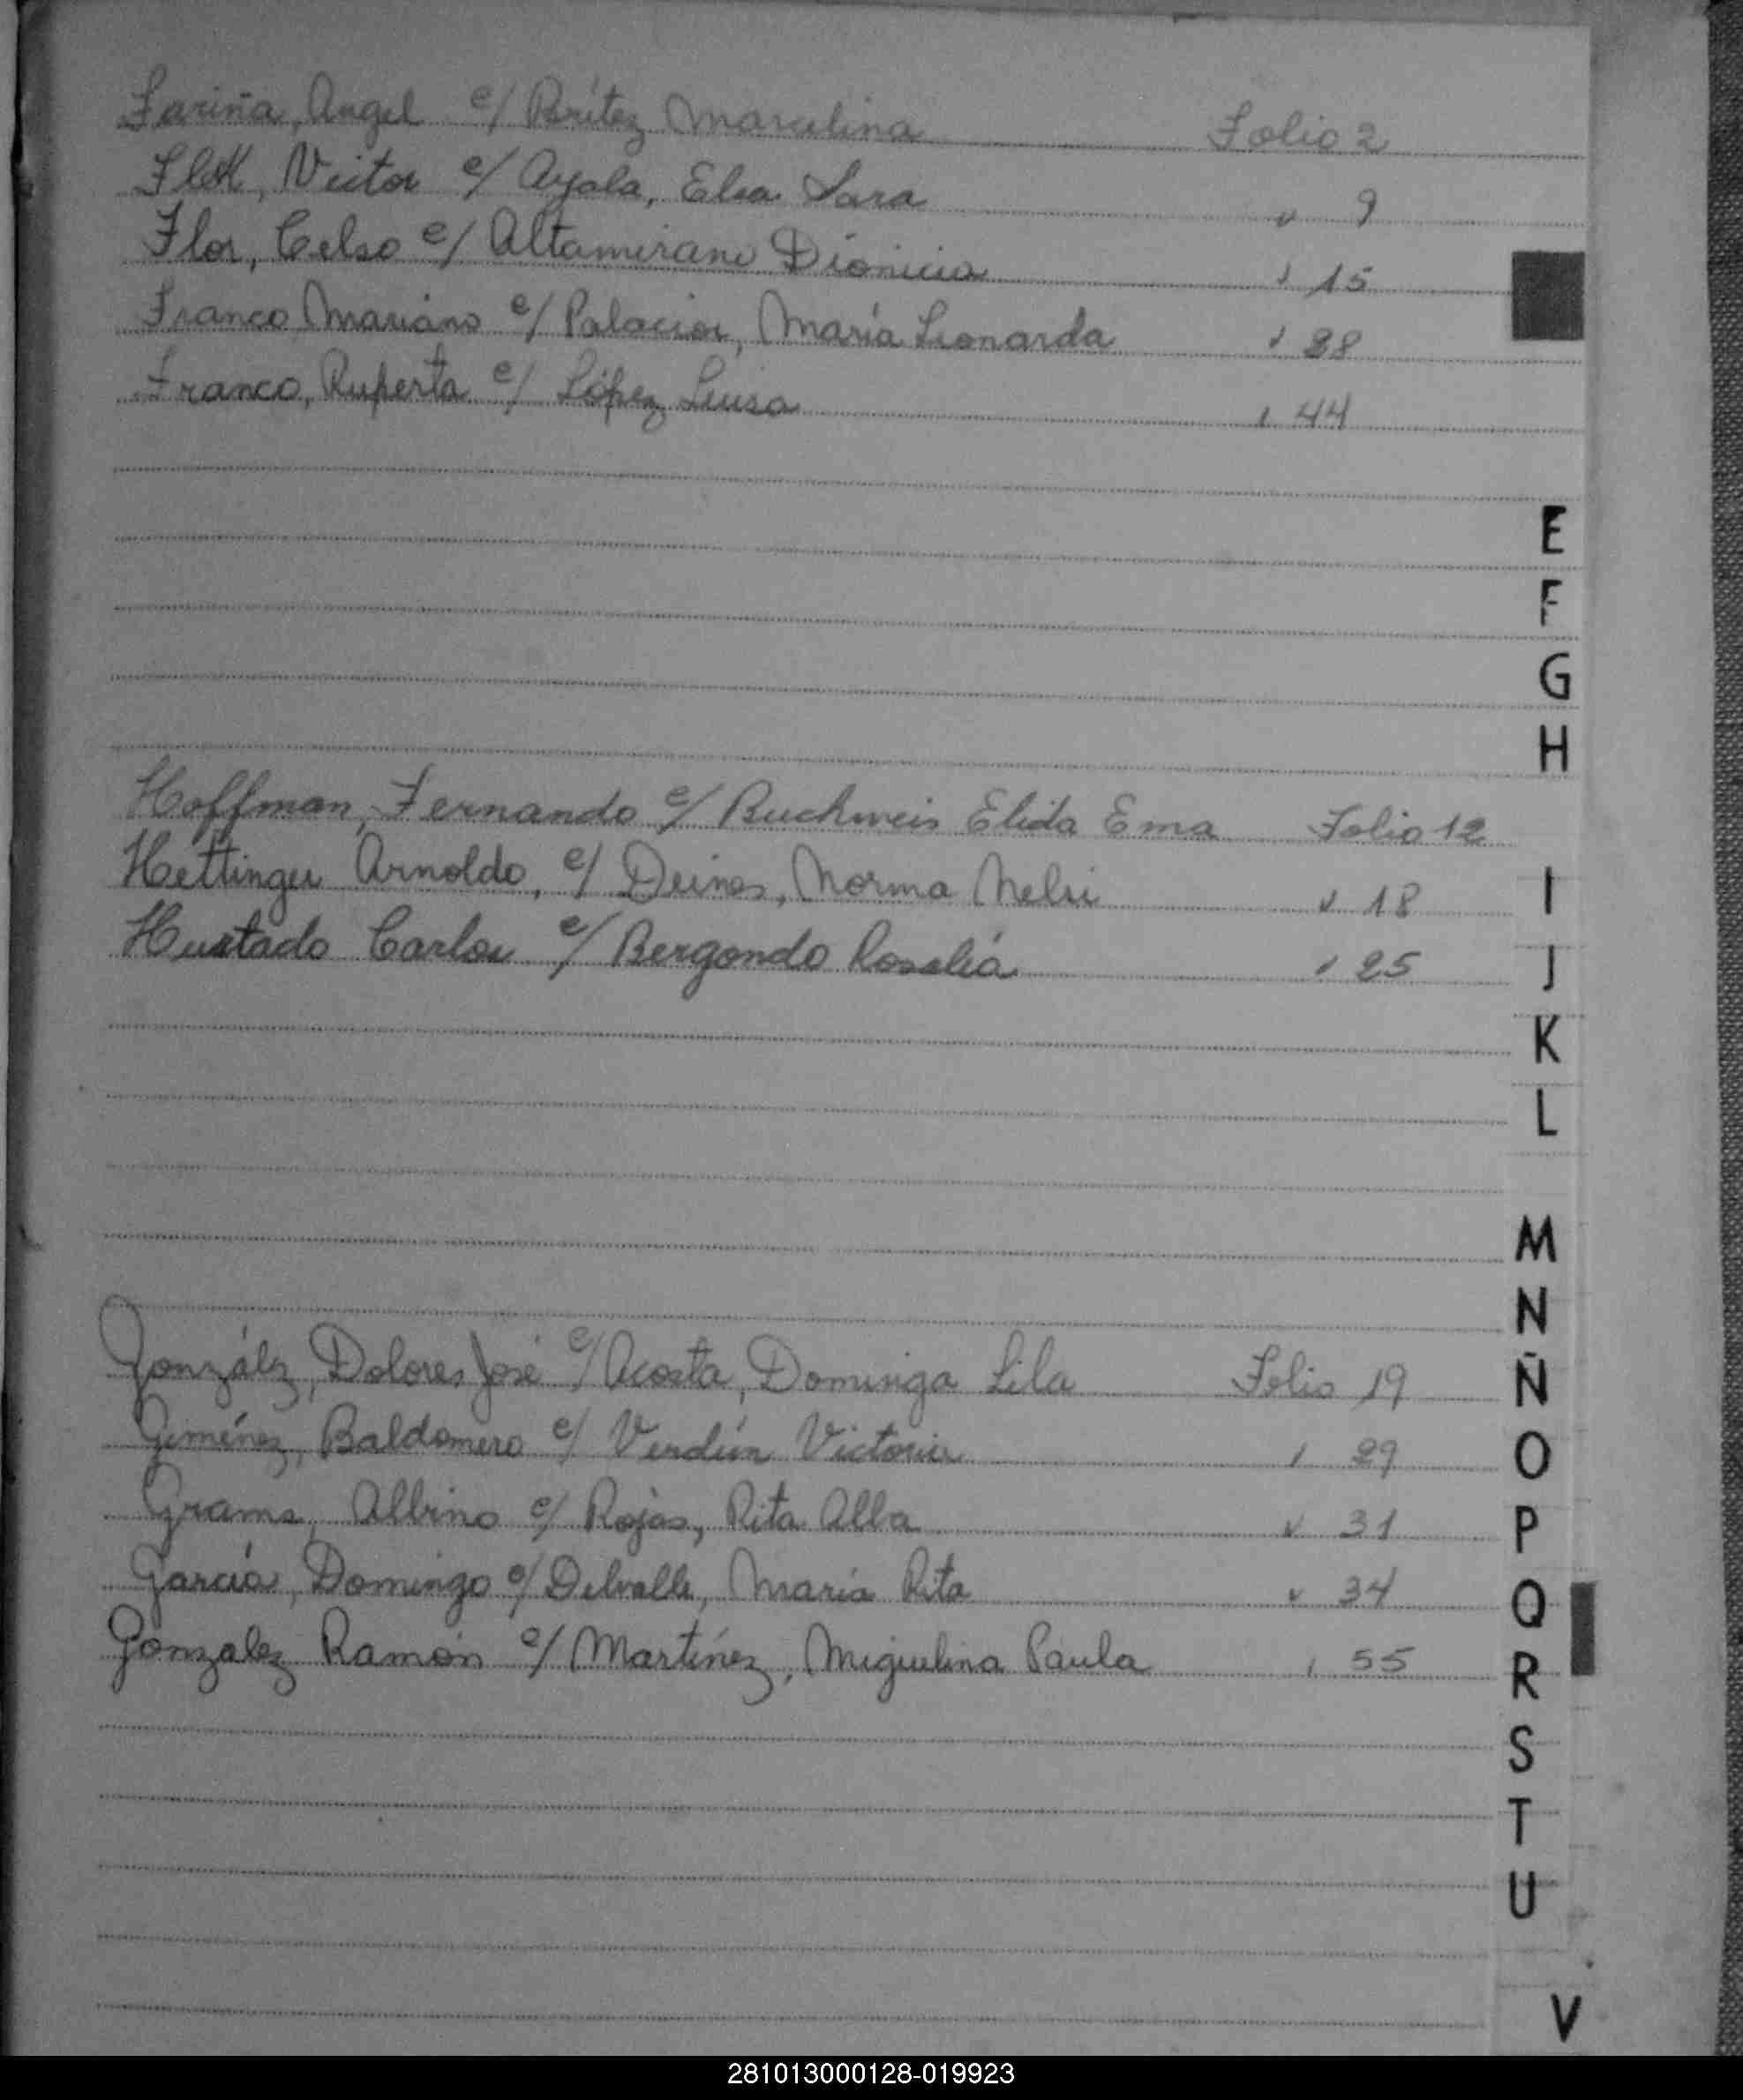 Fariña, Angel c/ Brítez Marcelina Folio 2
Victor c/ Ayala, Elsa Sara " 9
Flor, Celso c/ Altamirano Dionicia " 15
Franco Mariano c/ Palacios, María Leonarda " 38
Franco, Ruperto c/ López Luisa " 44
E
F
G
H
Hoffman, Fernando c/ Buchweis Elida Ema Folio 12
Hettinger Arnoldo, c/ Deines, Norma Nelsi " 18
I
Hurtado Carlos c/ Bergondo Rosalía " 25
J
K
L
M
N
González, Dolores José c/ Acosta, Dominga Lila Folio 19
Ñ
Giménez, Baldomero c/ Verdún Victoria " 29
O
Grams, Albino c/ Rojas, Rita Alba " 31
P
García, Domingo c/ Delvalle, María Rita " 34
Q
Gonzalez Ramón c/ Martínez, Miguelina Paula " 55
R
S
T
U
V
281013000128-019923